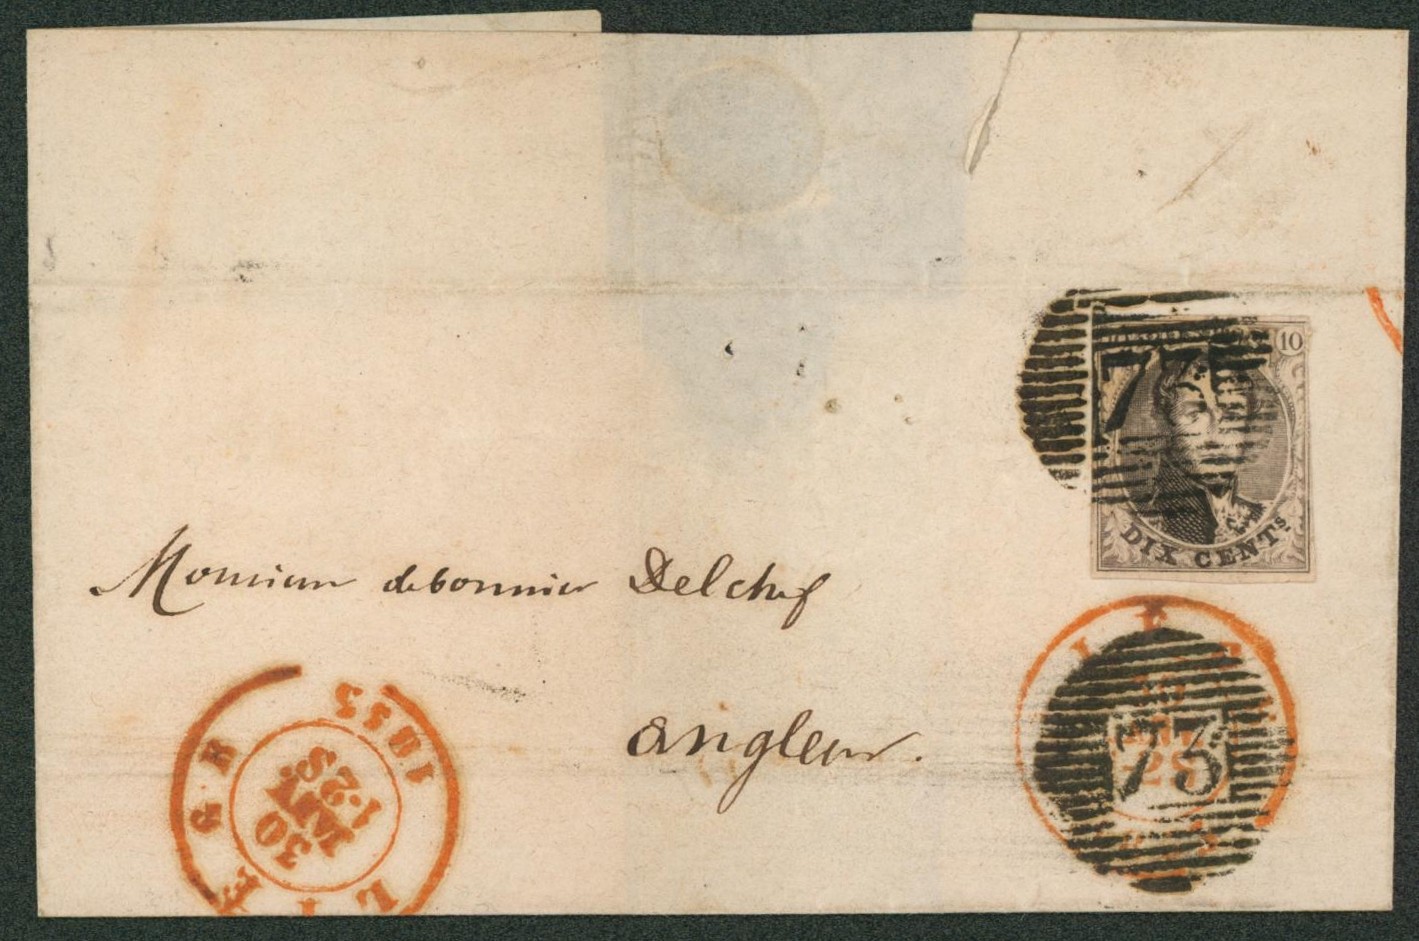 10
73
DIX CENTS
Monsieur debonnier Delchef
angleur.
73
LIEGE
30
1-2S
1855